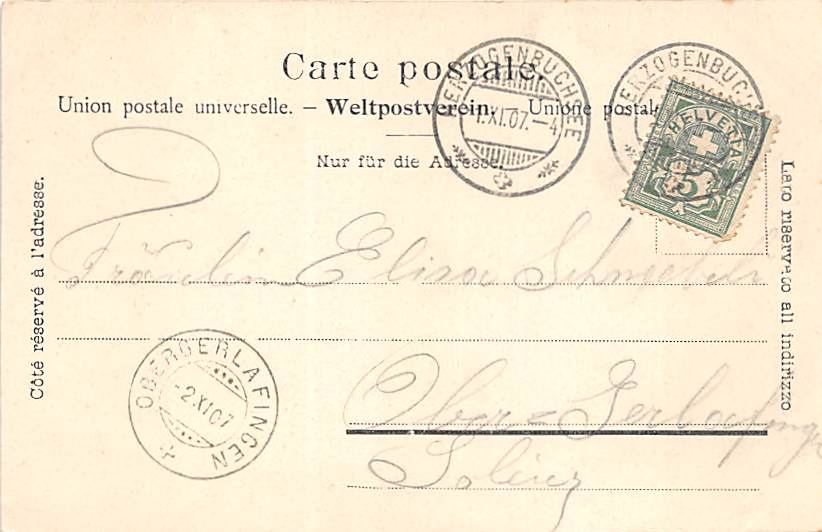 Carte postale.
Union postale universelle. – Weltpostverein. – Unione postale
Nur für die Adresse.
HERZOGENBUCHSEE
1.XI.07.–4
HERZOGENBUCH
HELVETIA
5
Côté réservé à l'adresse.
Lato riservato all indirizzo
Fräulein Elisa
OBERGERLAFINGEN
-2.XI.07
Ober=Gerlafingen